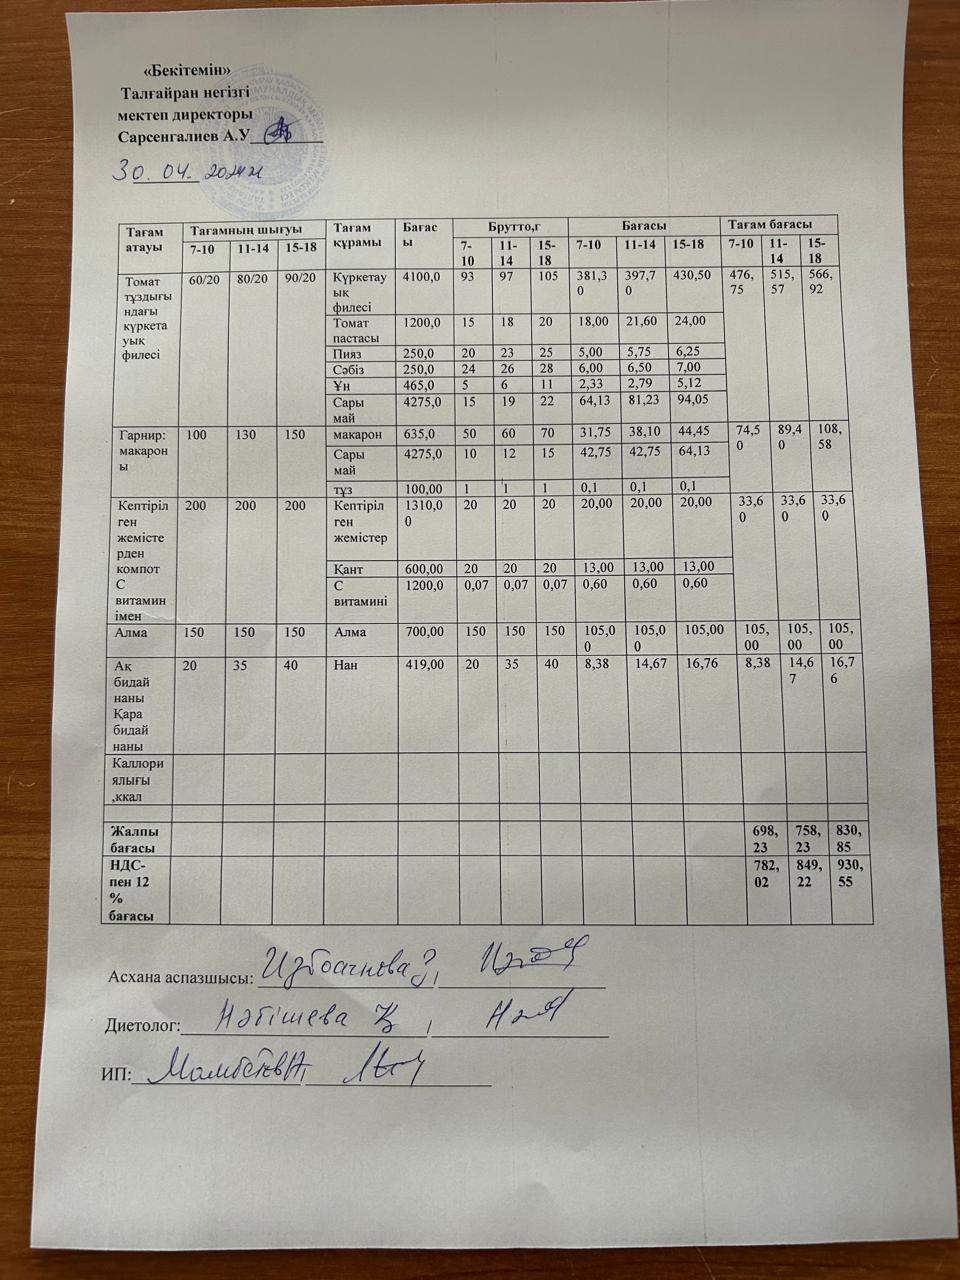 «Бекітемін»
Талғайран негізгі
мектеп директоры
Сарсенгалиев А.У
30. 04.
Тағам атауы Тағамның шығуы Тағам құрамы Бағасы Брутто,г Бағасы Тағам бағасы
7-10 11-14 15-18 7-10 11-14 15-18 7-10 11-14 15-18 7-10 11-14 15-18
Томат тұздығындағы күркетауық филесі 60/20 80/20 90/20 Күркетауық филесі 4100,0 93 97 105 381,30 397,70 430,50 476,75 515,57 566,92
Томат пастасы 1200,0 15 18 20 18,00 21,60 24,00
Пияз 250,0 20 23 25 5,00 5,75 6,25
Сәбіз 250,0 24 26 28 6,00 6,50 7,00
Ұн 465,0 5 6 11 2,33 2,79 5,12
Сары май 4275,0 15 19 22 64,13 81,23 94,05
Гарнир: макароны 100 130 150 макарон 635,0 50 60 70 31,75 38,10 44,45 74,50 89,40 108,58
Сары май 4275,0 10 12 15 42,75 42,75 64,13
тұз 100,00 1 1 1 0,1 0,1 0,1
Кептірілген жемістерден компот С витаминімен 200 200 200 Кептірілген жемістер 1310,00 20 20 20 20,00 20,00 20,00 33,60 33,60 33,60
Қант 600,00 20 20 20 13,00 13,00 13,00
С витамині 1200,0 0,07 0,07 0,07 0,60 0,60 0,60
Алма 150 150 150 Алма 700,00 150 150 150 105,00 105,00 105,00 105,00 105,00 105,00
Ақ бидай наны Қара бидай наны 20 35 40 Нан 419,00 20 35 40 8,38 14,67 16,76 8,38 14,67 16,76
Каллориялығы ,ккал
Жалпы бағасы 698,23 758,23 830,85
НДС-пен 12 % бағасы 782,02 849,22 930,55
Асхана аспазшысы:
Диетолог:
ИП: